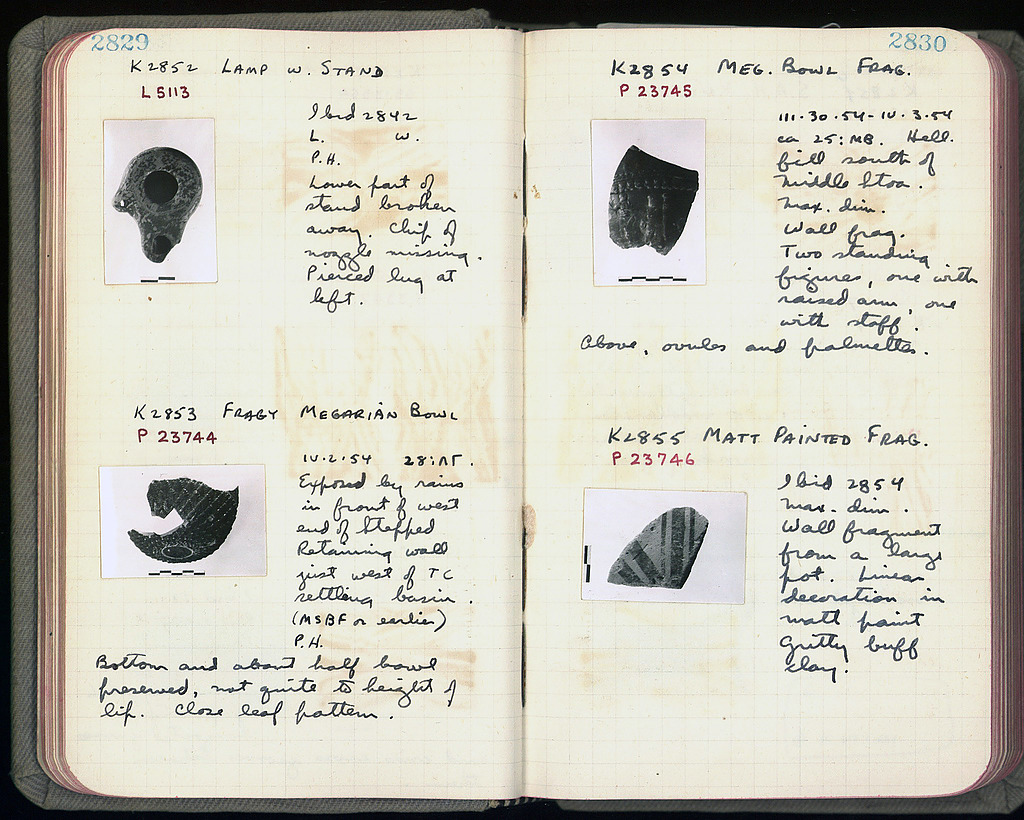 2829
K2852 LAMP W. STAND
L 5113
Ibid 2842
L. W.
P.H.
Lower part of
stand broken
away. Chip of
nozzle missing.
Pierced lug at
left.
K2853 FRAGY MEGARIAN BOWL
P 23744
IV.2.54 28:ΛΓ.
Exposed by rains
in front of west
end of Stepped
Retaining wall
just west of TC
settling basin.
(MSBF or earlier)
P.H.
Bottom and about half bowl
preserved, not quite to height of
lip. Close leaf pattern.
2830
K2854 MEG. BOWL FRAG.
P 23745
III.30.54-IV.3.54
ca 25:MB. Hell.
fill south of
Middle Stoa.
Max. dim.
Wall frag.
Two standing
figures, one with
raised arm, one
with staff.
Above, ovules and palmettes.
K2855 MATT PAINTED FRAG.
P 23746
Ibid 2854
Max. dim.
Wall fragment
from a large
pot. Linear
decoration in
matt paint
Gritty buff
clay.